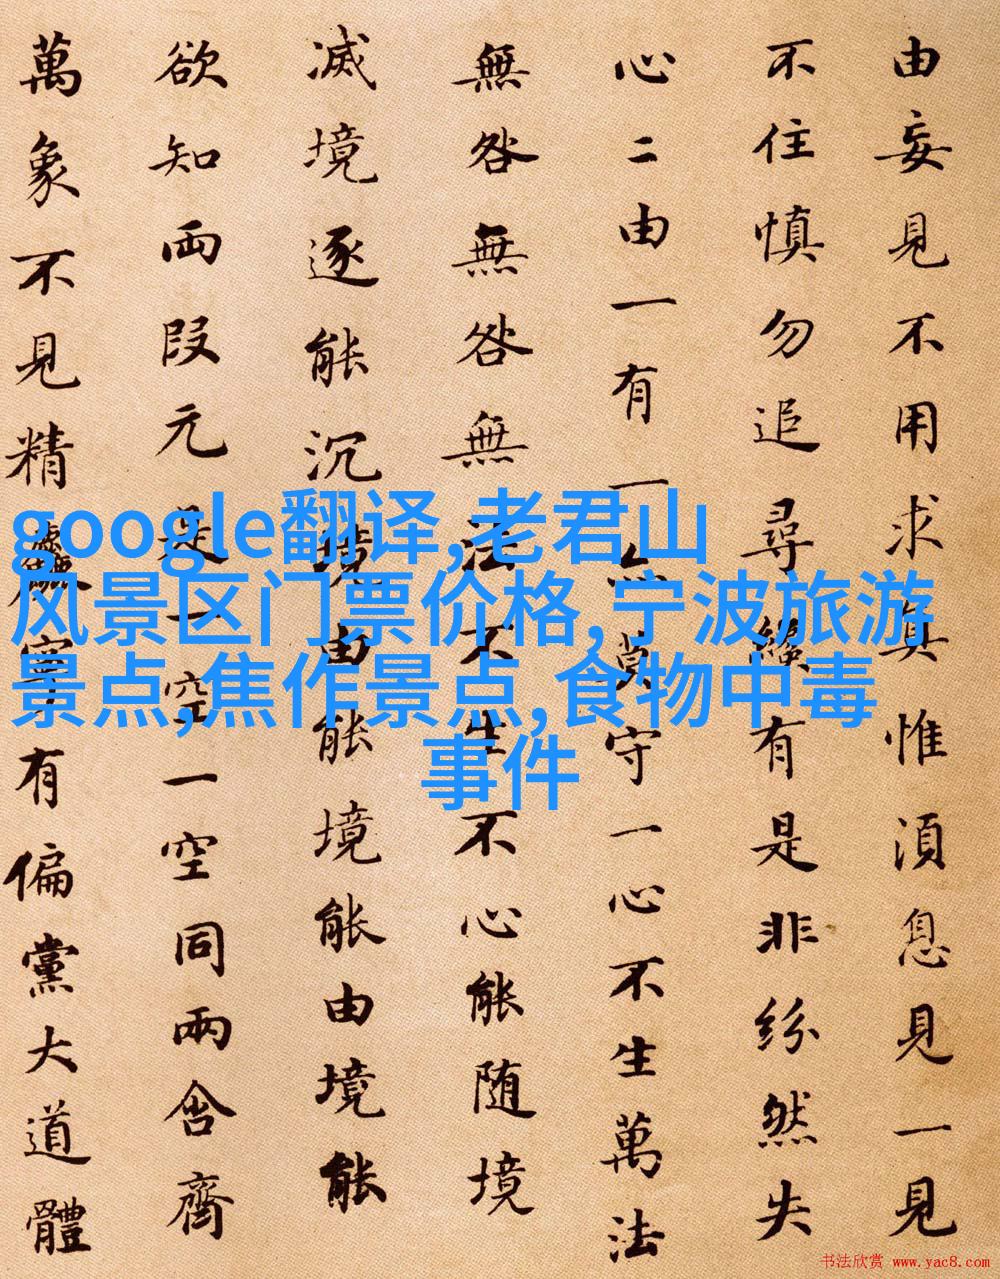 由妄見不用求真惟湏息見一見
不住慎勿追尋纔有是非紛然失
心二由一有一亦莫守一心不生萬法
無咎無咎無法不生不心能随境
滅境逐能沉境由能境能由境能
欲知两段元是一空一空同兩含齊
萬象不見精麤寧有偏黨大道體
google翻译,老君山
风景区门票价格,宁波旅游
景点,焦作景点,食物中毒
事件
书法欣赏 www.yac8.com